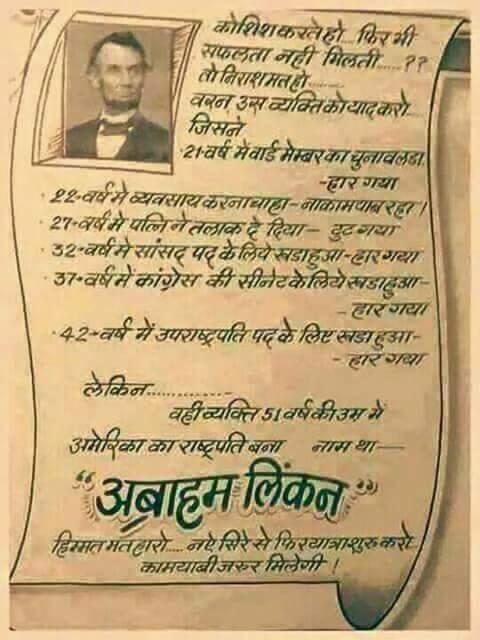 कोशिश करते हो.. फिर भी
सफलता नही मिलती.....??
तो निराश मत हो........
वरन उस व्यक्ति को याद करो..
जिसने
·21-वर्ष में वार्ड मेम्बर का चुनाव लडा.
-हार गया
·22-वर्ष मे व्यवसाय करना चाहा-नाकामयाब रहा।
·27-वर्ष मे पत्नि ने तलाक दे दिया- टुट गया
·32-वर्ष मे सांसद पद के लिये खडा हुआ-हार गया
·37-वर्ष में कांग्रेस की सीनेट के लिये खडा हुआ-
-हार गया
·42-वर्ष में उपराष्ट्रपति पद के लिए खडा हुआ-
-हार गया
लेकिन..............
वही व्यक्ति 51 वर्ष की उम्र में
अमेरिका का राष्ट्रपति बना नाम था—
"अब्राहम लिंकन"
हिम्मत मत हारो.... नऐ सिरे से फिर यात्रा शुरु करो.
कामयाबी जरुर मिलेगी !